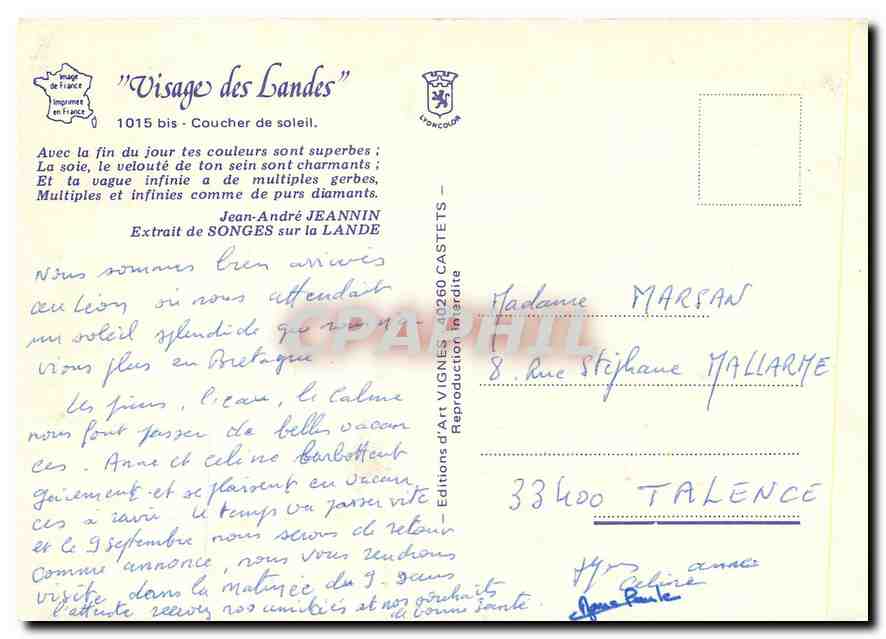 Image
de France
Imprimée
en France
"Visage des Landes"
1015 bis - Coucher de soleil.
Avec la fin du jour tes couleurs sont superbes ;
La soie, le velouté de ton sein sont charmants ;
Et ta vague infinie a de multiples gerbes,
Multiples et infinies comme de purs diamants.
Jean-André JEANNIN
Extrait de SONGES sur la LANDE
Nous sommes bien arrivés
au Léon où nous attendait
un soleil splendide que nous n'a-
vions plus en Bretagne.
Les pins, l'eau, le calme
nous font passer de belles vacan
ces. Anne et Celine barbottent
gaiement et se plaisent en vacan
ces à ravir. Le temps va passer vite
et le 9 septembre nous serons de retour
comme annoncé, nous vous rendrons
visite dans la matinée du 9. Dans
l'attente recevez nos amitiés et nos souhaits
de bonne santé.
LYONCOLOR
Editions d'Art VIGNES - 40260 CASTETS -
Reproduction Interdite
CPAPHIL
Madame MARSAN
8. Rue Stéphane MALLARME
33400 TALENCE
Anne
Celine